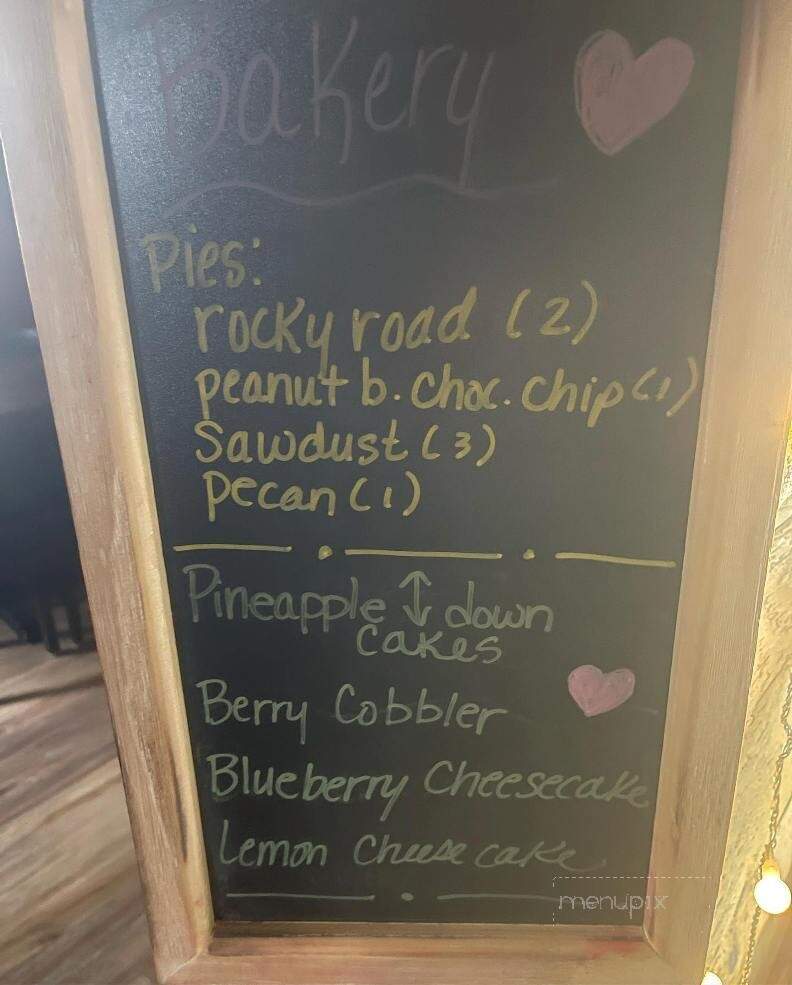 Bakery
Pies:
rocky road (2)
peanut b. choc. chip (1)
Sawdust (3)
pecan (1)
Pineapple ↕ down
cakes
Berry Cobbler
Blueberry Cheesecake
Lemon Cheese cake
menupix